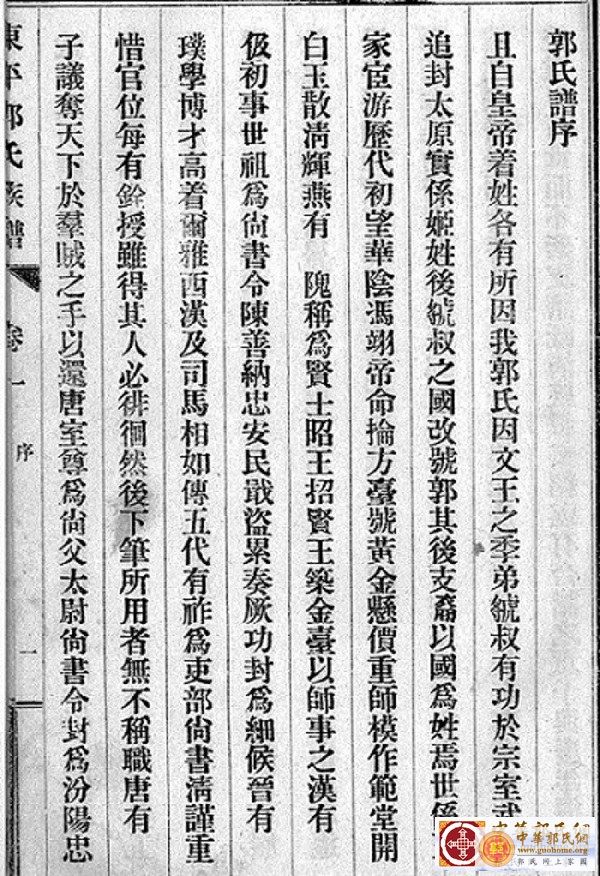 郭氏譜序
且白皇帝着姓各有所因我郭氏因文王之季弟虢叔有功於宗室武
追封太原實係姬姓後虢叔之國改號郭其後支裔以國爲姓焉世係
家宦游歷代初望華陰馮翊帝命掄方臺號黃金懸價重師模作範堂開
白玉散淸輝燕有 隗稱爲賢士昭王招賢王築金臺以師事之漢有
伋初事世祖爲尙書令陳善納忠安民戢盜累奏厥功封爲細候晉有
璞學博才高着爾雅西漢及司馬相如傳五代有祚爲吏部尙書淸謹重
惜官位每有銓授雖得其人必徘徊然後下筆所用者無不稱職唐有
子議奪天下於羣賊之手以還唐室尊爲尙父太尉尙書令封爲汾陽忠
東平郭氏族譜 卷一 序 一
中華郭氏網
www.guohome.org
郭氏网上家園